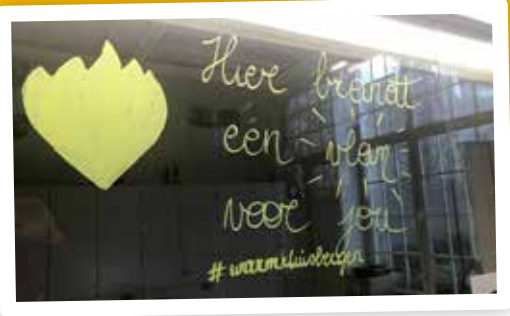 Hier brandt
een vlam
voor jou
#warmkluisbergen